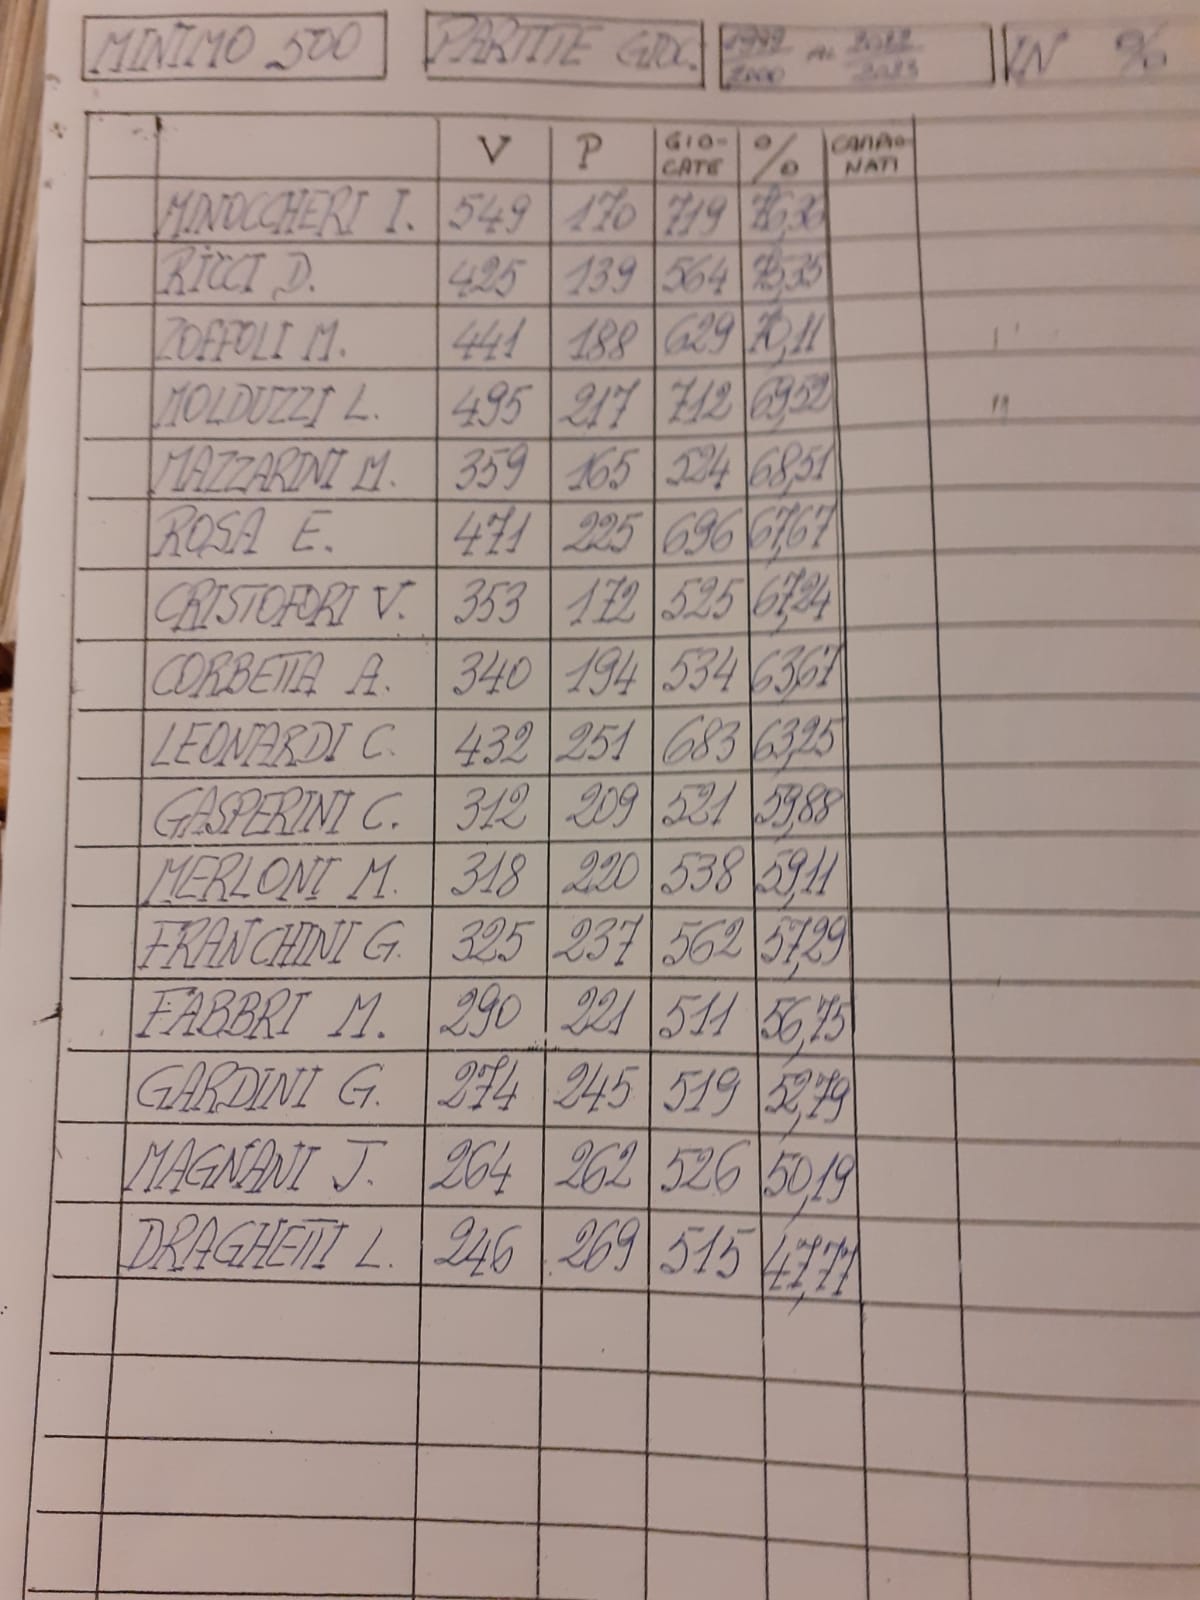 MINIMO 500 PARTITE GIOC. 1999/2000 AL 2022/2023 IN %
V P GIO-CATE % CAMPIO-NATI
MINOCCHERI I. 549 170 719 76,36
RICCI D. 425 139 564 75,35
ZOFFOLI M. 441 188 629 70,11
MOLDUZZI L. 495 217 712 69,52
MAZZARINI M. 359 165 524 68,51
ROSA E. 471 225 696 67,67
CRISTOFORI V. 353 172 525 67,24
CORBETTA A. 340 194 534 63,67
LEONARDI C. 432 251 683 63,25
GASPERINI C. 312 209 521 59,88
MERLONI M. 318 220 538 59,11
FRANCHINI G. 325 237 562 57,29
FABBRI M. 290 221 511 56,75
GARDINI G. 274 245 519 52,79
MAGNANI J. 264 262 526 50,19
DRAGHETTI L. 246 269 515 47,77